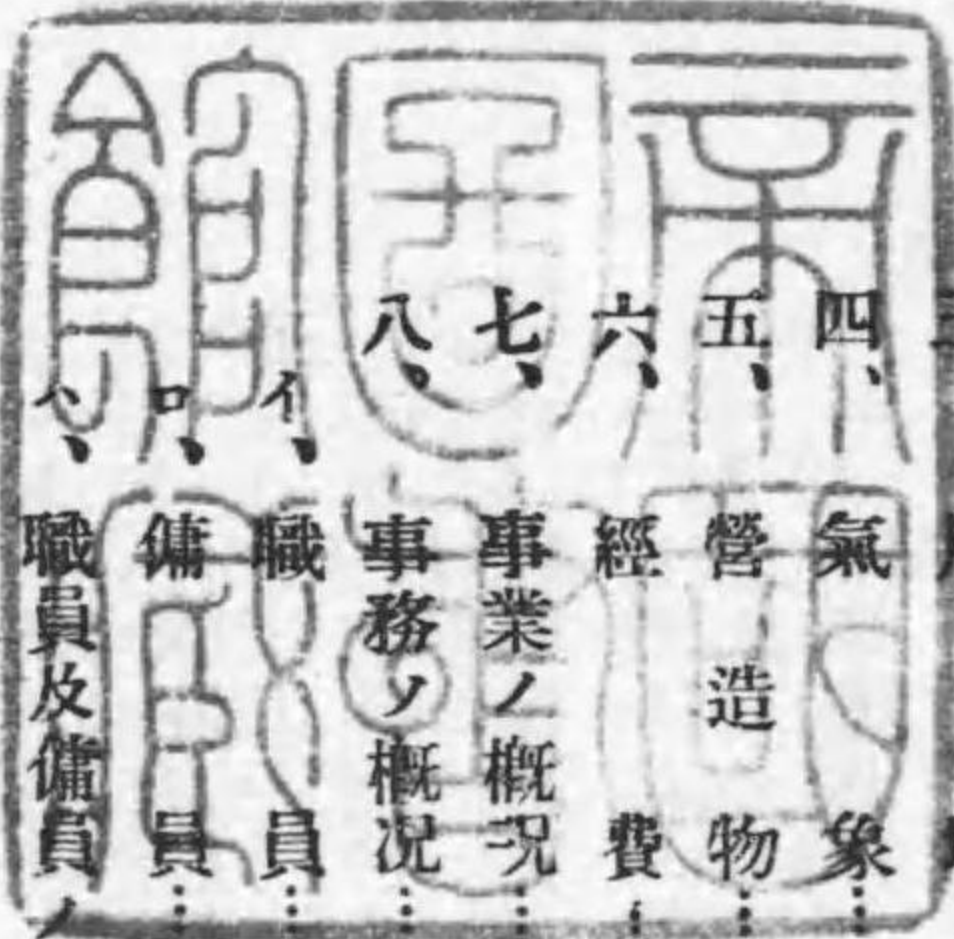 四、氣象……
五、營造物……
六、經費…
七、事業ノ概況……
八、事務ノ概況……
イ、職員……
ロ、傭員……
ハ、職員及傭員ノ